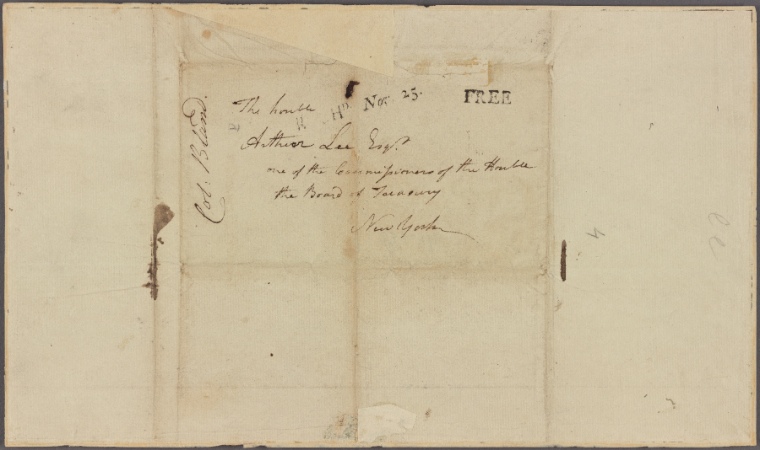 Col. Bland.
The honble
Nov. 25.
FREE
Arthur Lee Esqr.
one of the Commissioners of the Honble
the Board of Treasury
New York
4